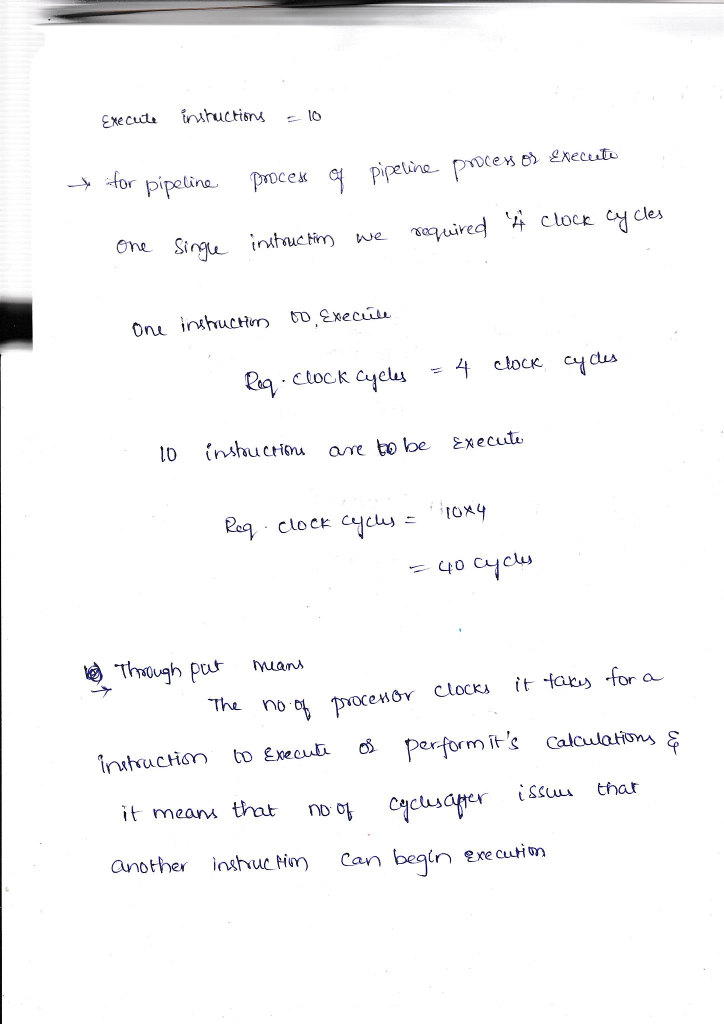 Execute instructions = 10
→ for pipeline process of pipeline process or execute
one single instruction we required '4' clock cycles
One instruction to execute
Req. clock cycles = 4 clock cycles
10 instructions are to be execute
Req. clock cycles = 10x4
= 40 cycles
→ Through put means
The no. of processor clocks it takes for a
instruction to execute or perform it's calculations &
it means that no of cycles after issues that
another instruction can begin execution